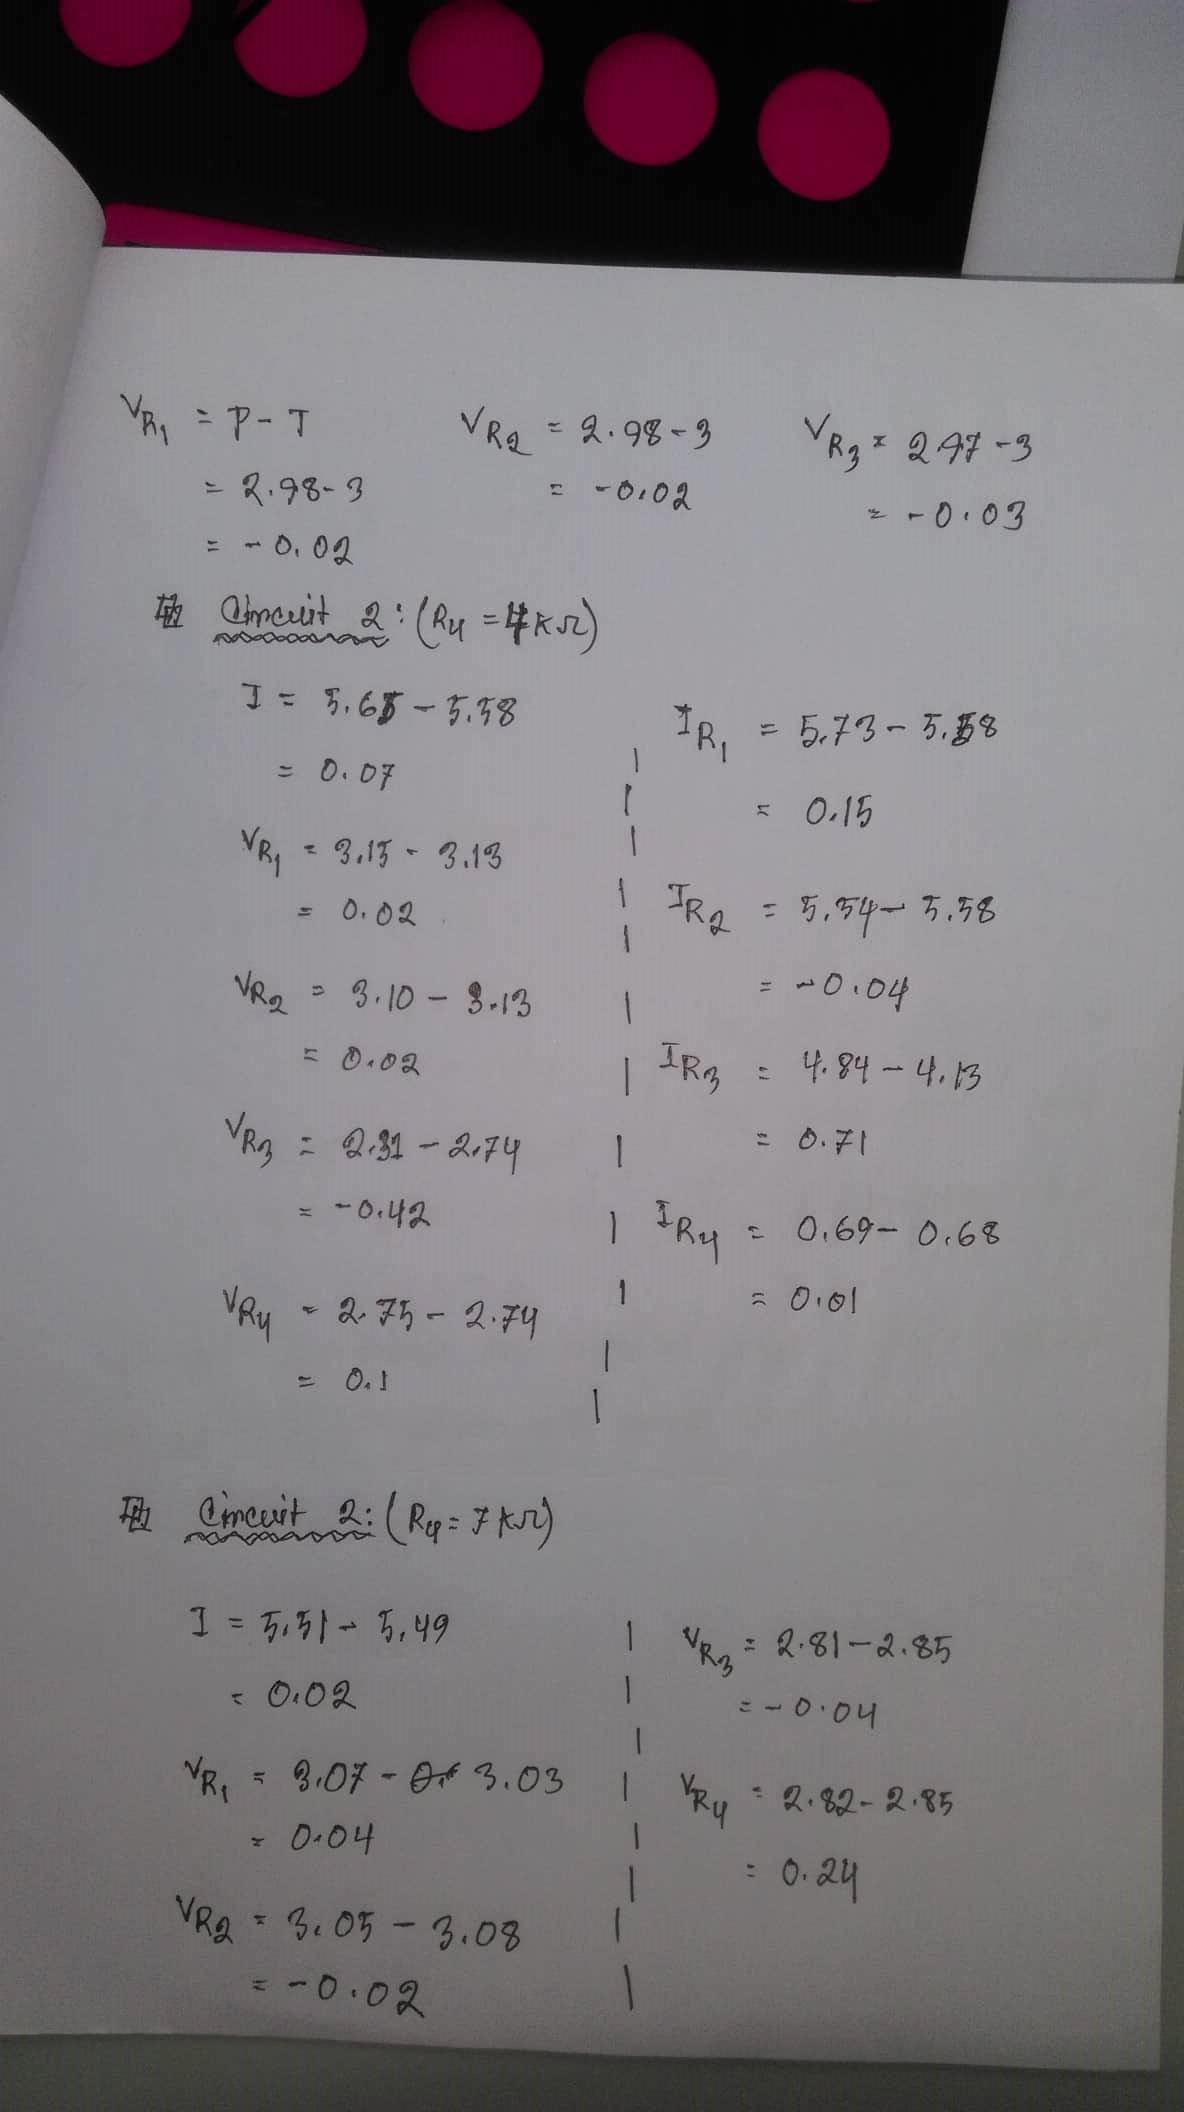 V_R1 = P - T
= 2.98 - 3
= -0.02
V_R2 = 2.98 - 3
= -0.02
V_R3 = 2.97 - 3
= -0.03
Circuit 2: (R4 = 4 kΩ)
I = 5.65 - 5.58
= 0.07
V_R1 = 3.15 - 3.13
= 0.02
V_R2 = 3.10 - 3.13
= 0.02
V_R3 = 2.31 - 2.74
= -0.42
V_R4 = 2.75 - 2.74
= 0.1
I_R1 = 5.73 - 5.58
= 0.15
I_R2 = 5.54 - 5.58
= -0.04
I_R3 = 4.84 - 4.13
= 0.71
I_R4 = 0.69 - 0.68
= 0.01
Circuit 2: (R4 = 7 kΩ)
I = 5.51 - 5.49
= 0.02
V_R1 = 3.07 - 3.03
= 0.04
V_R2 = 3.05 - 3.08
= -0.02
V_R3 = 2.81 - 2.85
= -0.04
V_R4 = 2.82 - 2.85
= 0.24